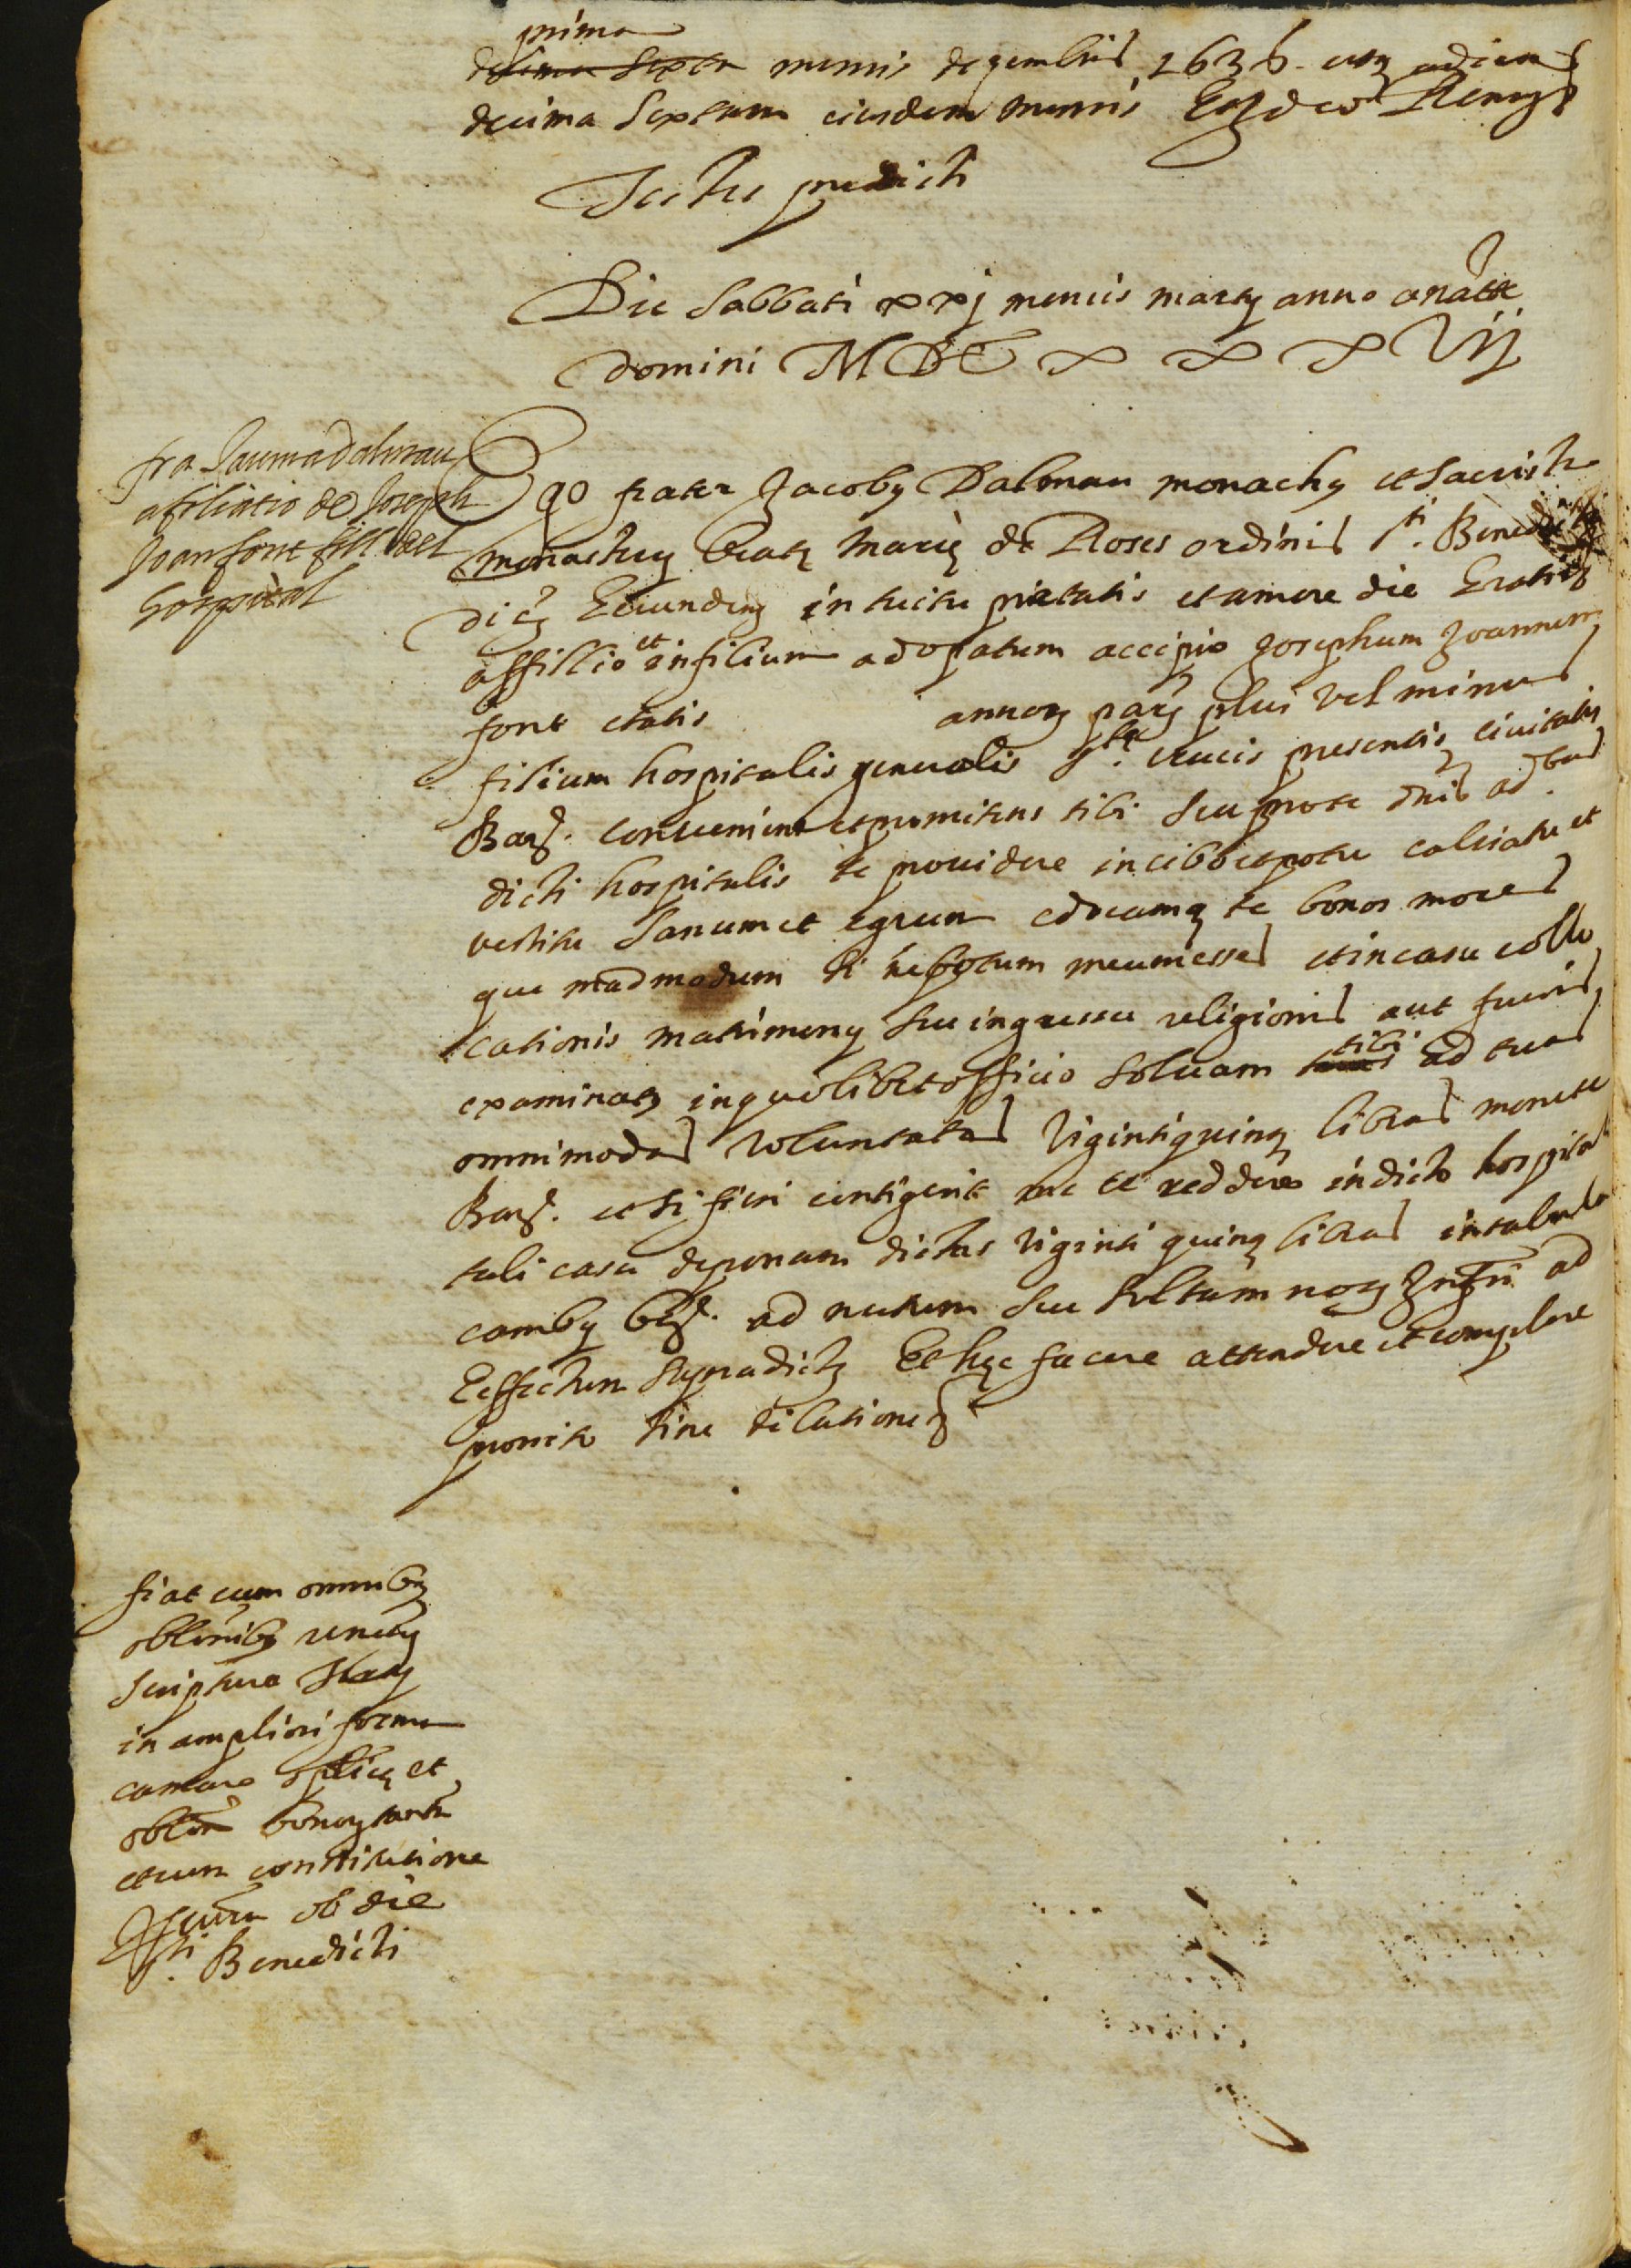 prima
decima sexta mensis desembris 1636. usq adiem
decima septam eiusdem mensis Et ideo Renuns
Testes predicti
Die sabbati xxj mensis martij anno anatte
domini MDCxxxVij
fra Jauma dalmau
afiliatio de Joseph
Joan font fill del
hospital
Ego frater Jacobus Dalmau monachus et sacrista
monasterij beatę Marię de Roses ordinis sti. Benedicti
dicę Gerundeñ intuitu pietatis et amore die Gratis
affillio et infilium adoptatum accipio Josephum Joannem
font etatis annorum parum plus vel minus
filium hospitalis generalis stę. crucis presentis civitatis
Barñ. conveniens et promitens tibi seu prote dnis adtoribus
dicti hospitalis te providere incibo et potu calciatu et
vestitu sanum et egrum educamq te bonos mores
que madmodum si nepotum meum esses et in casu collo
cationis matrimonij seu ingressu religionis aut fueris
examinatus inquolibet officio solvam tibi ad tuas
omnimodas voluntatas viginti quinq libras monete
Barñ. et si fieri contigerit me te reddere indicto hospital
tali casu deponam dictas viginti quinq libras intabula
cambij barñ. ad nutum seu solitum nots Infri ad
Eeffectum supradictę Et hęc facere attendere et complere
promito sine dilatione
fiat cum omnibus
oblinibus
scriptura
in ampliori forma
camare et
bonorum
et cum constitutione
ob die
sti. Benedicti